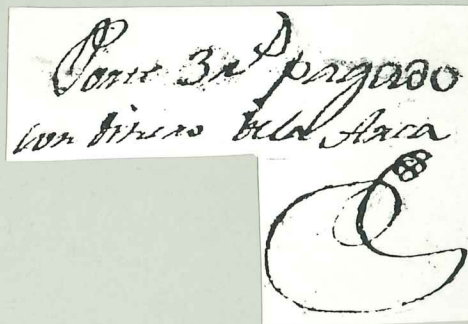 Porte 3 rs pagado
con dinero dela Arca